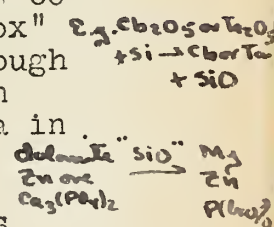 ox" E.g. Cb2O5 or Ta2O5
ough + Si → Cb or Ta
+ SiO
n
a in
dolomite "SiO" Mg
Zn ore → Zn
Ca3(PO4)2
s